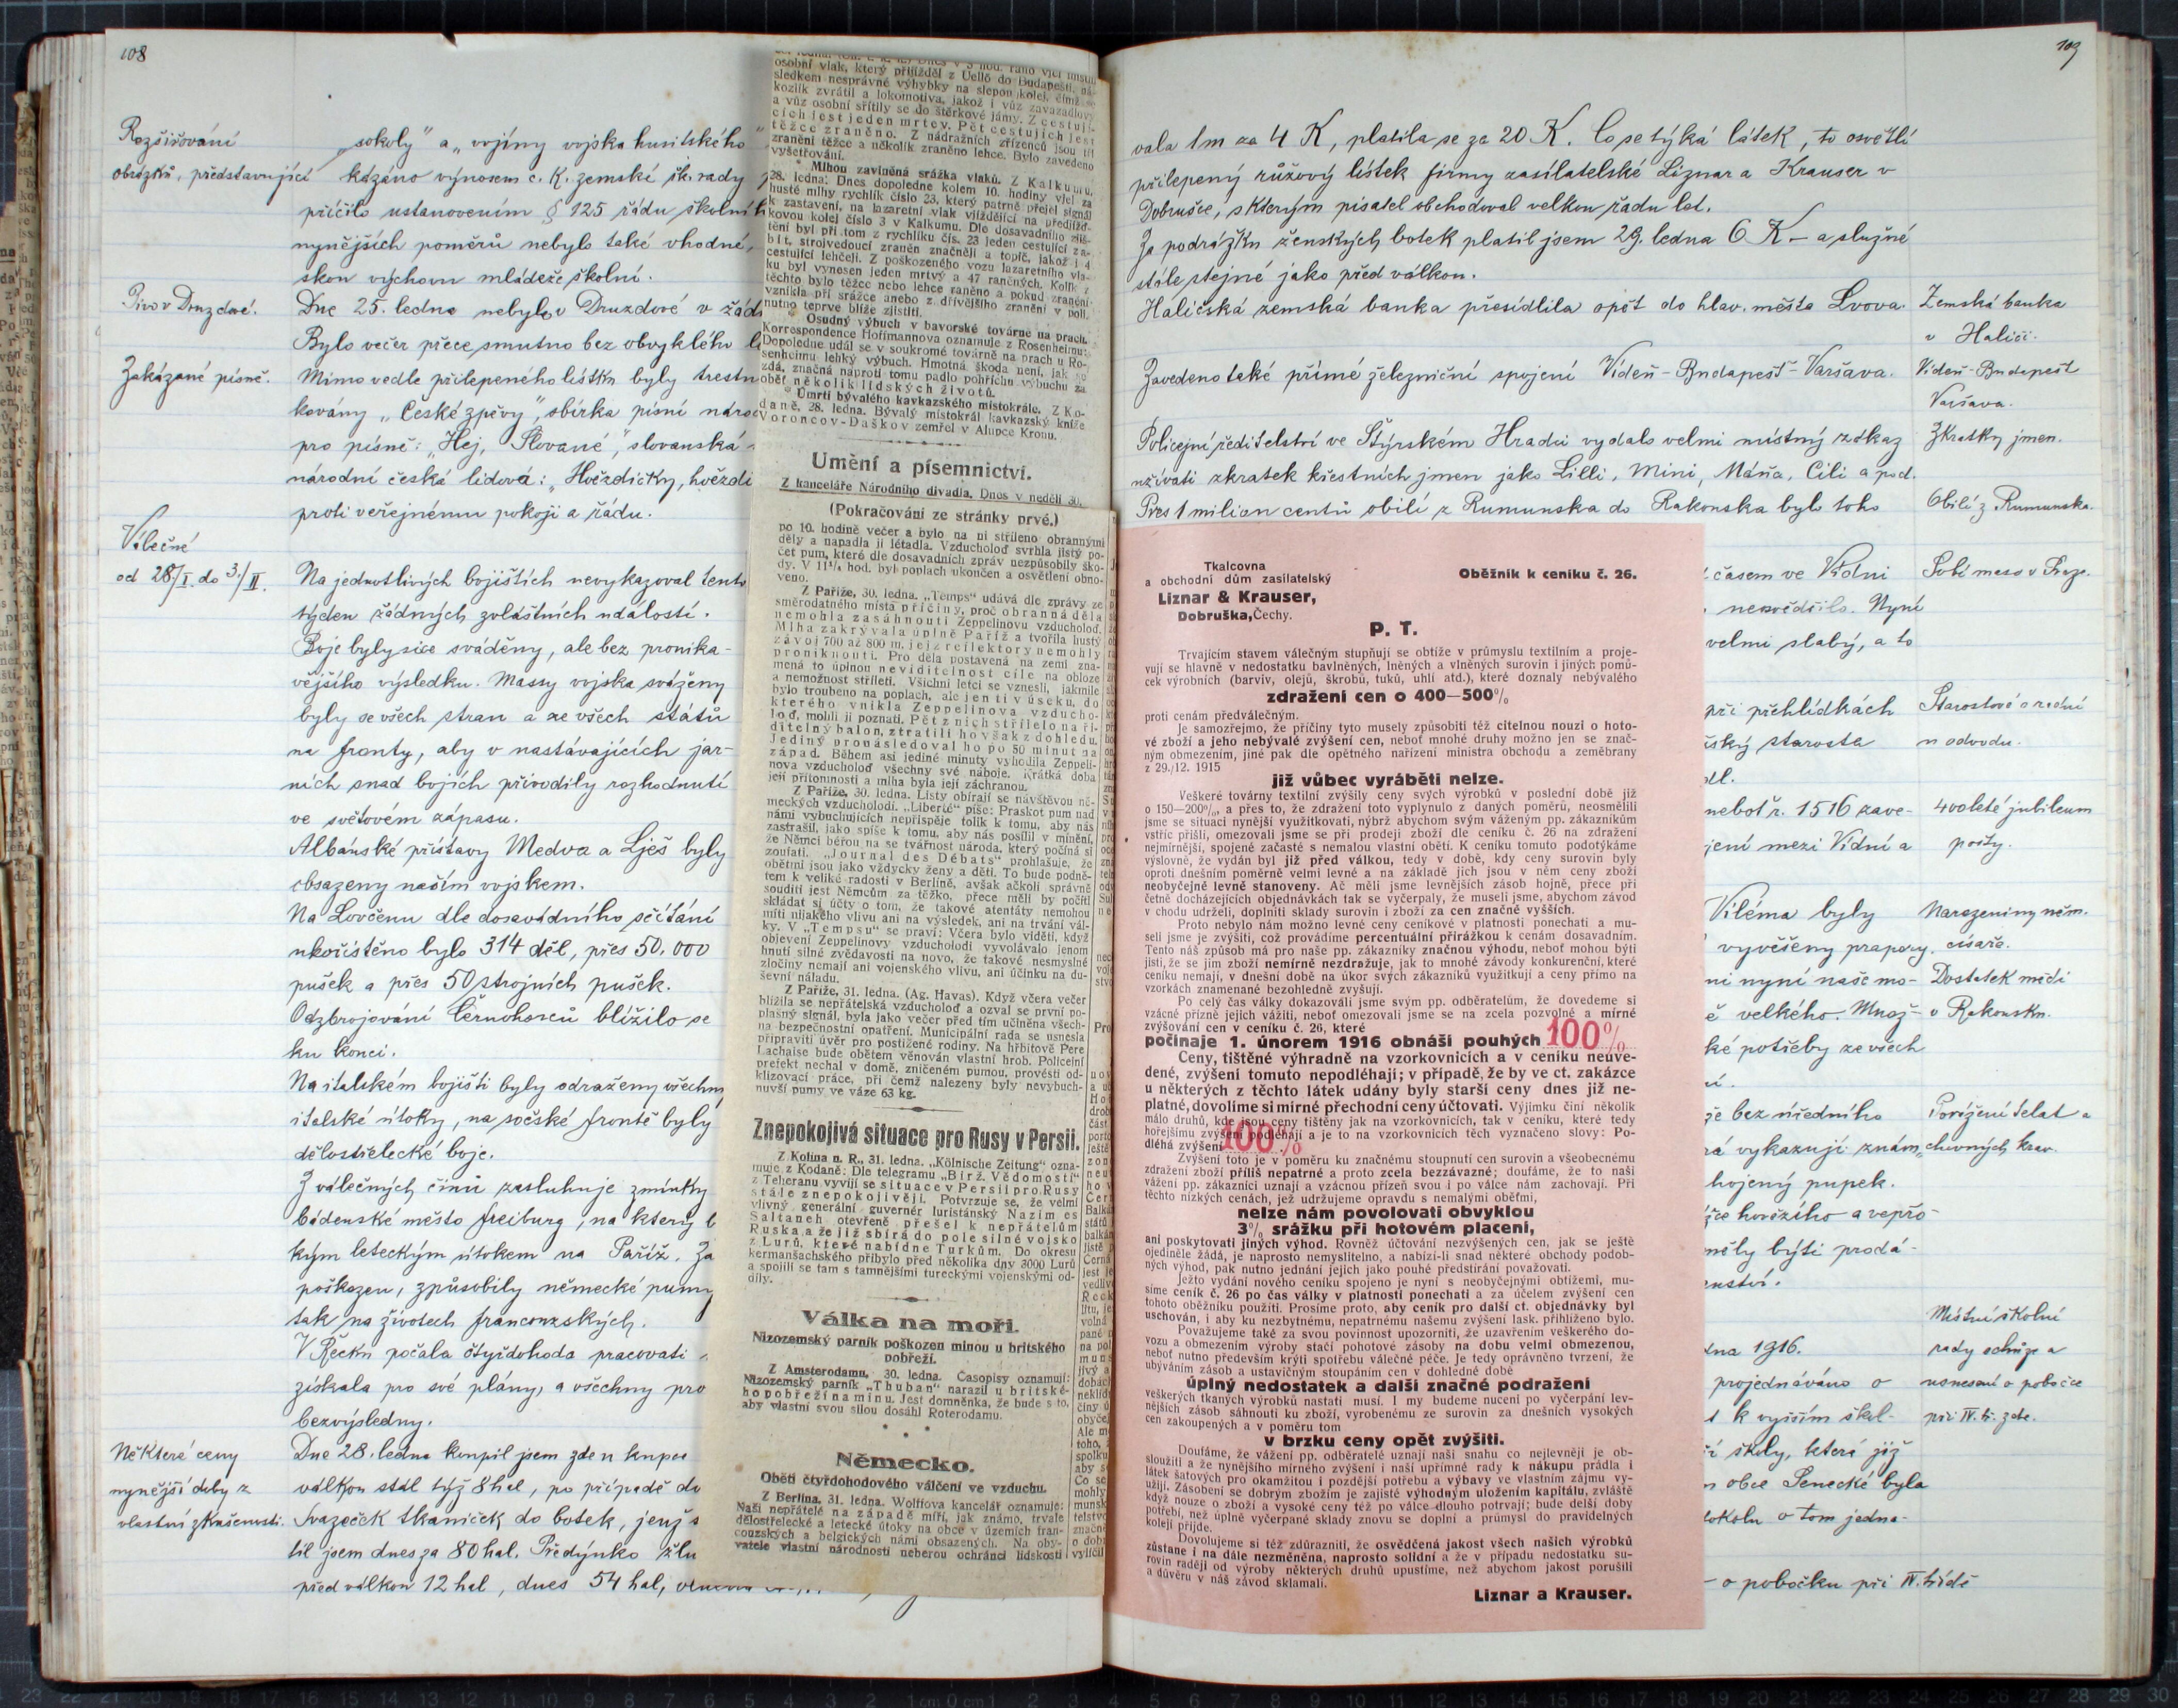 108
Rozšiřování
obrázků, představující
„sokoly" a „vojíny vojska husitského"
kázáno výnosem c. k. zemské šk. rady
příčilo ustanovením § 125 řádu školní
nynějších poměrů nebylo také vhodné,
skou výchovu mládeže školní.
Pivo v Druzdové.
Dne 25. ledna nebylo v Druzdové v žád
Bylo večer přece smutno bez obvyklého
Zakázané písně.
Mimo vedle přilepeného lístku byly trestn
kovány „České zpěvy", sbírka písní náro
pro písně: „Hej, Slované", slovanská
národní česká lidová: „Hvězdičky, hvězdi
proti veřejnému pokoji a řádu.
Válečné
od 28/I. do 3./II.
Na jednotlivých bojištích nevykazoval tento
týden žádných zvláštních událostí.
Boje byly sice sváděny, ale bez pronika-
vějšího výsledku. Massy vojska sváženy
byly se všech stran a ze všech států
na fronty, aby v nastávajících jar-
ních snad bojích přivodily rozhodnutí
ve světovém zápasu.
Albánské přístavy Medva a Lješ byly
obsazeny naším vojskem.
Na Lovčenu dle dosavádního sčítání
ukořistěno bylo 314 děl, přes 50.000
pušek a přes 50 strojních pušek.
Odzbrojování Černohorců blížilo se
ku konci.
Na italském bojišti byly odraženy všechny
italské útoky, na sočské frontě byly
dělostřelecké boje.
Z válečných činů zasluhuje zmínky
bádenské město Freiburg, na který
kým leteckým útokem na Paříž. Za
poškozen, způsobily německé pumy
tak na životech francouzských.
V Řecku počala čtyřdohoda pracovati
získala pro své plány, a všechny pro
bezvýsledny.
Některé ceny
nynější doby z
vlastní zkušenosti.
Dne 28. ledna koupil jsem zde u kupce
válkou stál týž 8 hal, po případě
Svazeček tkaniček do botek, jenž s
til jsem dnes za 80 hal. Předýnko žlu
před válkou 12 hal, dnes 54 hal,
osobní vlak, který přijížděl z Uelló do Budapešti, ná-
sledkem nesprávné výhybky na slepou kolej, čímž se
kozlík zvrátil a lokomotiva, jakož i vůz zavazadlový
a vůz osobní sřítily se do štěrkové jámy. Z cestují-
cích jest jeden mrtev. Pět cestujících jest
těžce zraněno. Z nádražních zřízenců jsou tři
zraněni těžce a několik zraněno lehce. Bylo zavedeno
vyšetřování.
* Mlhou zaviněná srážka vlaků. Z Kalkumu,
28. ledna: Dnes dopoledne kolem 10. hodiny vjel za
husté mlhy rychlík číslo 23, který patrně přejel signál
k zastavení, na lazaretní vlak vjíždějící na předjížď-
kovou kolej číslo 3 v Kalkumu. Dle dosavadního zjiš-
tění byl při tom z rychlíku čís. 23 jeden cestující za-
bit, strojvedoucí zraněn značněji a topič, jakož i 4
cestující lehčeji. Z poškozeného vozu lazaretního vla-
ku byl vynesen jeden mrtvý a 47 raněných. Kolik z
těchto bylo těžce nebo lehce raněno a pokud zranění
vznikla při srážce anebo z dřívějšího zranění v poli,
nutno teprve blíže zjistiti.
* Osudný výbuch v bavorské továrně na prach.
Korrespondence Hoffmannova oznamuje z Rosenheimu:
Dopoledne udál se v soukromé továrně na prach u Ro-
senheimu lehký výbuch. Hmotná škoda není, jak se
zdá, značná naproti tomu padlo pohříchu výbuchu za
oběť několik lidských životů.
* Úmrtí bývalého kavkazského místokrále. Z Ko-
daně, 28. ledna. Bývalý místokrál kavkazský kníže
Voroncov-Daškov zemřel v Alupce Kronu.
Umění a písemnictví.
Z kanceláře Národního divadla. Dnes v neděli 30.
(Pokračování ze stránky prvé.)
po 10. hodině večer a bylo na ni stříleno obrannými
děly a napadla ji létadla. Vzducholoď svrhla jistý po-
čet pum, které dle dosavadních zpráv nezpůsobily ško-
dy. V 11¼ hod. byl poplach ukončen a osvětlení obno-
veno.
Z Paříže, 30. ledna. „Temps" udává dle zprávy ze
směrodatného místa příčiny, proč obranná děla
nemohla zasáhnouti Zeppelinovu vzducholoď.
Mlha zakrývala úplně Paříž a tvořila hustý
závoj 700 až 800 m, jejž reflektory nemohly
proniknouti. Pro děla postavená na zemi zna-
mená to úplnou neviditelnost cíle na obloze
a nemožnost stříleti. Všichni letci se vznesli, jakmile
bylo troubeno na poplach, ale jen ti v úseku, do
kterého vnikla Zeppelinova vzducho-
loď, mohli ji poznati. Pět z nich střílelo na ři-
ditelný balon, ztratili ho však z dohledu.
Jediný pronásledoval ho po 50 minut na
západ. Během asi jediné minuty vyhodila Zeppeli-
nova vzducholoď všechny své náboje. Krátká doba
její přítomnosti a mlha byla její záchranou.
Z Paříže, 30. ledna. Listy obírají se návštěvou ně-
meckých vzducholodí. „Liberté" píše: Praskot pum nad
námi vybuchujících nepřispěje tolik k tomu, aby nás
zastrašil, jako spíše k tomu, aby nás posílil v mínění,
že Němci běrou na se tvářnost národa, který počíná si
zoufati. „Journal des Débats" prohlašuje, že
obětmi jsou jako vždycky ženy a děti. To bude podně-
tem k veliké radosti v Berlíně, avšak ačkoli správně
souditi jest Němcům za těžko, přece měli by počítl
skládat si účty o tom, že takové atentáty nemohou
míti nijakého vlivu ani na výsledek, ani na trvání vál-
ky. V „Tempsu" se praví: Včera bylo viděti, když
objevení Zeppelinovy vzducholodi vyvolávalo jenom
hnutí silné zvědavosti na novo, že takové nesmyslné
zločiny nemají ani vojenského vlivu, ani účinku na du-
ševní náladu.
Z Paříže, 31. ledna. (Ag. Havas). Když včera večer
blížila se nepřátelská vzducholoď a ozval se první po-
plašný signál, byla jako večer před tím učiněna všech-
na bezpečnostní opatření. Municipální rada se usnesla
připraviti úvěr pro postižené rodiny. Na hřbitově Pere
Lachaise bude obětem věnován vlastní hrob. Policejní
prefekt nechal v domě, zničeném pumou, provésti od-
klizovací práce, při čemž nalezeny byly nevybuch-
nuvší pumy ve váze 63 kg.
Znepokojivá situace pro Rusy v Persii.
Z Kolína n. R., 31. ledna. „Kölnische Zeitung" ozna-
muje z Kodaně: Dle telegramu „Birž. Vědomosti"
z Teheranu vyvíjí se situace v Persii pro Rusy
stále znepokojivěji. Potvrzuje se, že velmi
vlivný generální guvernér luristánský Nazim es
Saltaneh otevřeně přešel k nepřátelům
Ruska a že již sbírá do pole silné vojsko
z Lurů, které nabídne Turkům. Do okresu
kermanšachského přibylo před několika dny 3000 Lurů
a spojili se tam s tamnějšími tureckými vojenskými od-
díly.
Válka na moři.
Nizozemský parník poškozen minou u britského
pobřeží.
Z Amsterodamu, 30. ledna. Časopisy oznamují:
Nizozemský parník „Thuban" narazil u britské-
ho pobřeží na minu. Jest domněnka, že bude s to,
aby vlastní svou silou dosáhl Roterodamu.
* * *
Německo.
Oběti čtyřdohodového válčení ve vzduchu.
Z Berlína, 31. ledna. Wolffova kancelář oznamuje:
Naši nepřátelé na západě míří, jak známo, trvale
dělostřelecké a letecké útoky na obce v územích fran-
couzských a belgických námi obsazených. Na oby-
vatele vlastní národnosti neberou ochránci lidskosti
109
vala 1m za 4 K, platila se za 20 K. Co se týká látek, to osvětlí
přilepený růžový lístek firmy zasílatelské Liznar a Krauser v
Dobrušce, s kterým pisatel obchodoval velkou řadu let.
Za podrážku ženských botek platil jsem 29. ledna 6 K – a služné
stále stejné jako před válkou.
Haličská zemská banka přesídlila opět do hlav. města Lvova.
Zemská banka
v Haliči.
Zavedeno také přímé železniční spojení Vídeň-Budapešť-Varšava.
Vídeň-Budapešť
Varšava.
Policejní ředitelství ve Štýrském Hradci vydalo velmi místný zákaz
užívati zkratek křestních jmen jako Lilli, Mini, Máňa, Cili a pod.
Zkratky jmen.
Přes 1 milion centů obilí z Rumunska do Rakouska bylo toho
Obilí z Rumunska.
Tkalcovna
a obchodní dům zasilatelský
Liznar & Krauser,
Dobruška, Čechy.
Oběžník k ceníku č. 26.
P. T.
Trvajícím stavem válečným stupňují se obtíže v průmyslu textilním a proje-
vují se hlavně v nedostatku bavlněných, lněných a vlněných surovin i jiných pomů-
cek výrobních (barviv, olejů, škrobů, tuků, uhlí atd.), které doznaly nebývalého
zdražení cen o 400—500%
proti cenám předválečným.
Je samozřejmo, že příčiny tyto musely způsobiti též citelnou nouzi o hoto-
vé zboží a jeho nebývalé zvýšení cen, neboť mnohé druhy možno jen se znač-
ným obmezením, jiné pak dle opětného nařízení ministra obchodu a zeměbrany
z 29./12. 1915
již vůbec vyráběti nelze.
Veškeré továrny textilní zvýšily ceny svých výrobků v poslední době již
o 150—200%, a přes to, že zdražení toto vyplynulo z daných poměrů, neosmělili
jsme se situaci nynější využitkovati, nýbrž abychom svým váženým pp. zákazníkům
vstříc přišli, omezovali jsme se při prodeji zboží dle ceníku č. 26 na zdražení
nejmírnější, spojené začasté s nemalou vlastní obětí. K ceníku tomuto podotýkáme
výslovně, že vydán byl již před válkou, tedy v době, kdy ceny surovin byly
oproti dnešním poměrně velmi levné a na základě jich jsou v něm ceny zboží
neobyčejně levně stanoveny. Ač měli jsme levnějších zásob hojně, přece při
četně docházejících objednávkách tak se vyčerpaly, že museli jsme, abychom závod
v chodu udrželi, doplniti sklady surovin i zboží za cen značně vyšších.
Proto nebylo nám možno levné ceny ceníkové v platnosti ponechati a mu-
seli jsme je zvýšiti, což provádíme percentuální přirážkou k cenám dosavadním.
Tento náš způsob má pro naše pp. zákazníky značnou výhodu, neboť mohou býti
jisti, že se jim zboží nemírně nezdražuje, jak to mnohé závody konkurenční, které
ceníku nemají, v dnešní době na úkor svých zákazníků využitkují a ceny přímo na
vzorkách znamenané bezohledně zvyšují.
Po celý čas války dokazovali jsme svým pp. odběratelům, že dovedeme si
vzácné přízně jejich vážiti, neboť omezovali jsme se na zcela pozvolné a mírné
zvyšování cen v ceníku č. 26, které
počínaje 1. únorem 1916 obnáší pouhých 100%
Ceny, tištěné výhradně na vzorkovnicích a v ceníku neuve-
dené, zvýšení tomuto nepodléhají; v případě, že by ve ct. zakázce
u některých z těchto látek udány byly starší ceny dnes již ne-
platné, dovolíme si mírné přechodní ceny účtovati. Výjimku činí několik
málo druhů, kde jsou ceny tištěny jak na vzorkovnicích, tak v ceníku, které tedy
hořejšímu zvýšení podléhají a je to na vzorkovnicích těch vyznačeno slovy: Po-
dléhá zvýšení 100%
Zvýšení toto je v poměru ku značnému stoupnutí cen surovin a všeobecnému
zdražení zboží příliš nepatrné a proto zcela bezzávazné; doufáme, že to naši
vážení pp. zákazníci uznají a vzácnou přízeň svou i po válce nám zachovají. Při
těchto nízkých cenách, jež udržujeme opravdu s nemalými oběťmi,
nelze nám povolovati obvyklou
3% srážku při hotovém placení,
ani poskytovati jiných výhod. Rovněž účtování nezvýšených cen, jak se ještě
ojediněle žádá, je naprosto nemyslitelno, a nabízí-li snad některé obchody podob-
ných výhod, pak nutno jednání jejich jako pouhé předstírání považovati.
Ježto vydání nového ceníku spojeno je nyní s neobyčejnými obtížemi, mu-
síme ceník č. 26 po čas války v platnosti ponechati a za účelem zvýšení cen
tohoto oběžníku použíti. Prosíme proto, aby ceník pro další ct. objednávky byl
uschován, i aby ku nezbytnému, nepatrnému našemu zvýšení lask. přihlíženo bylo.
Považujeme také za svou povinnost upozorniti, že uzavřením veškerého do-
vozu a obmezením výroby stačí pohotové zásoby na dobu velmi obmezenou,
neboť nutno především krýti spotřebu válečné péče. Je tedy oprávněno tvrzení, že
ubýváním zásob a ustavičným stoupáním cen v dohledné době
úplný nedostatek a další značné podražení
veškerých tkaných výrobků nastati musí. I my budeme nuceni po vyčerpání lev-
nějších zásob sáhnouti ku zboží, vyrobenému ze surovin za dnešních vysokých
cen zakoupených a v poměru tom
v brzku ceny opět zvýšiti.
Doufáme, že vážení pp. odběratelé uznají naši snahu co nejlevněji je ob-
sloužiti a že nynějšího mírného zvýšení i naší upřímné rady k nákupu prádla i
látek šatových pro okamžitou i pozdější potřebu a výbavy ve vlastním zájmu vy-
užijí. Zásobení se dobrým zbožím je zajisté výhodným uložením kapitálu, zvláště
když nouze o zboží a vysoké ceny též po válce dlouho potrvají; bude delší doby
potřebí, než úplně vyčerpané sklady znovu se doplní a průmysl do pravidelných
kolejí přijde.
Dovolujeme si též zdůrazniti, že osvědčená jakost všech našich výrobků
zůstane i na dále nezměněna, naprosto solidní a že v případu nedostatku su-
rovin raději od výroby některých druhů upustíme, než abychom jakost porušili
a důvěru v náš závod sklamali.
Liznar a Krauser.
časem ve Vídni
Sobí maso v Praze.
neosvědčilo. Nyní
velmi slabý, a to
při přehlídkách
Starostové a radní
ský starosta
u odvodu.
dl.
neboť r. 1516 zave-
400leté jubileum
jení mezi Vídní a
pošty.
Viléma byly
Narozeniny něm.
vyvěšeny prapory.
císaře.
ní nyní naše mo-
Dostatek mědi
ě velkého. Množ-
v Rakousku.
ké potřeby ze všech
ní.
že bez úředního
Porážení telat a
rá vykazují znám
chovných krav.
hojený pupek.
že hovězího a vepřo-
měly býti prodá-
enství.
Místní školní
dna 1916.
rady schůze a
projednáváno o
usnesení o pobočce
t k vyšším škol-
při IV. tř. zde.
í školy, která již
n obce Senecké byla
tokolu o tom jedna-
– o pobočku při IV. třídě